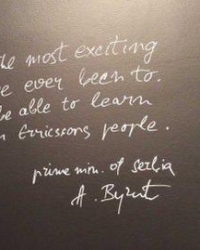 the most exciting
ve ever been to.
be able to learn
Ericssons people.
prime min. of serbia
A.